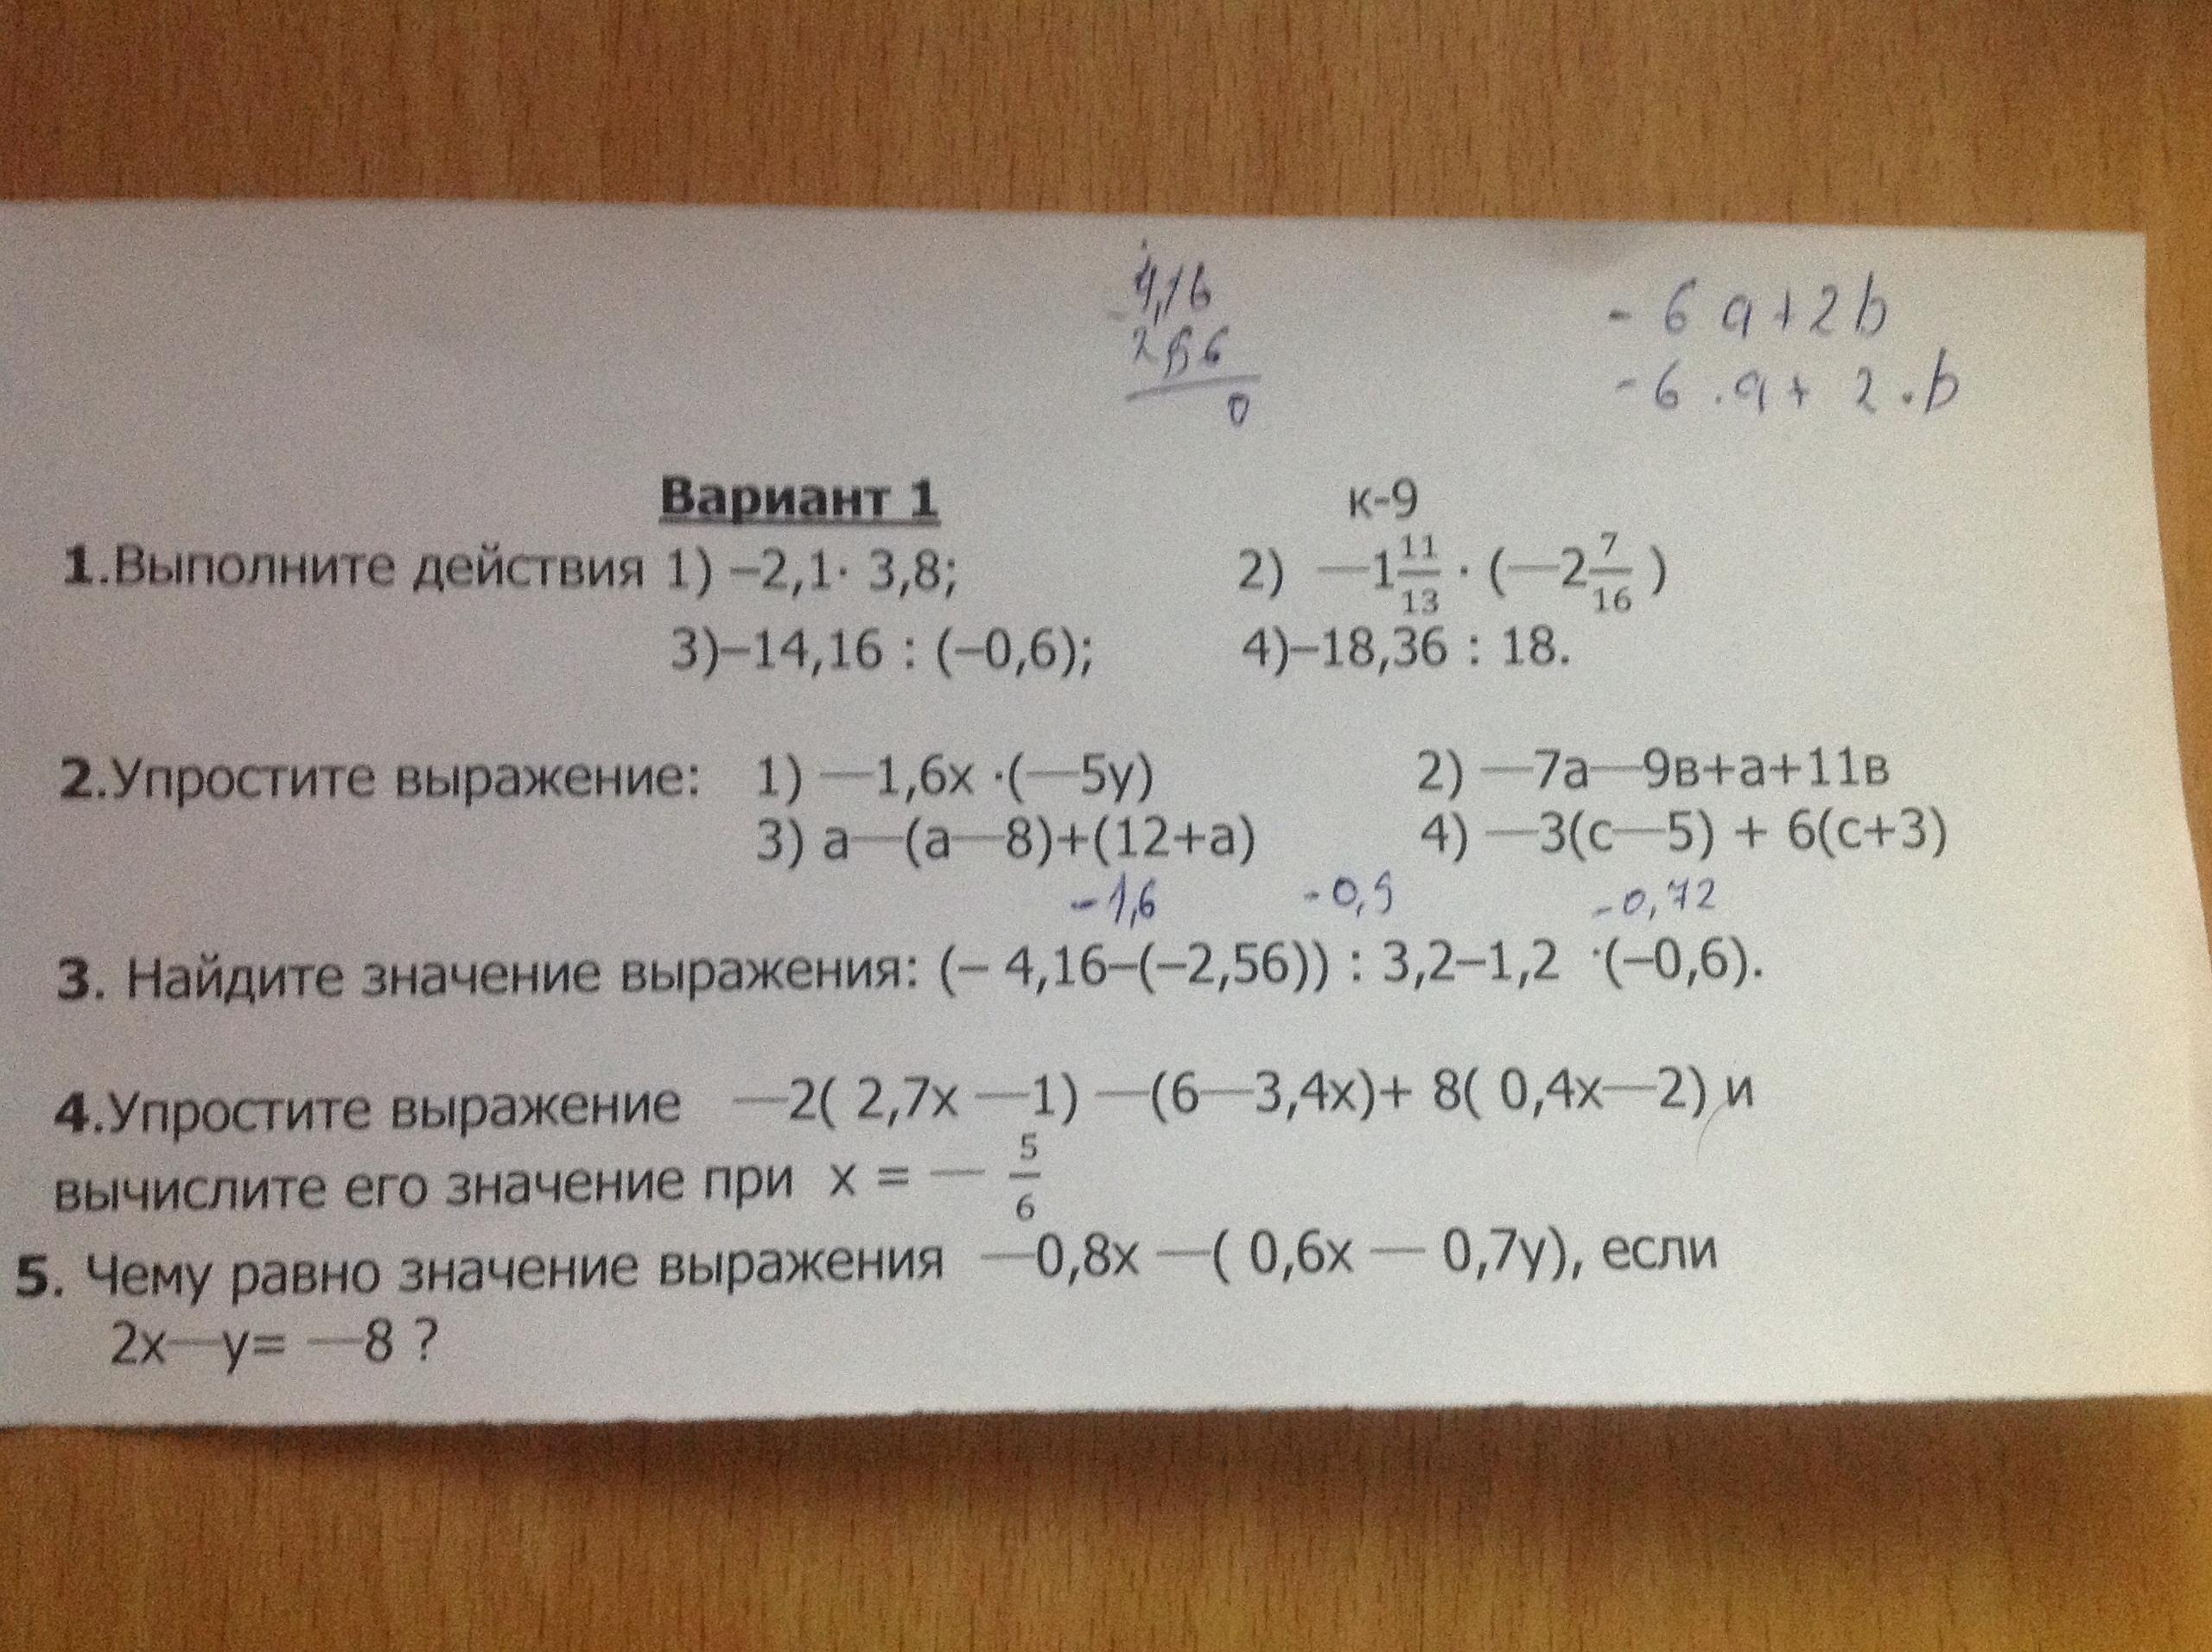 4,16
- 6 a + 2 b
2,56
- 6 . a + 2 . b
0
Вариант 1 к-9
1.Выполните действия 1) –2,1· 3,8; 2) —1 11/13 · (—2 7/16 )
3)–14,16 : (–0,6); 4)–18,36 : 18.
2.Упростите выражение: 1) —1,6х ·(—5у) 2) —7а—9в+а+11в
3) а—(а—8)+(12+а) 4) —3(с—5) + 6(с+3)
- 1,6 - 0,5 - 0,72
3. Найдите значение выражения: (– 4,16–(–2,56)) : 3,2–1,2 ·(–0,6).
4.Упростите выражение —2( 2,7х —1) —(6—3,4х)+ 8( 0,4х—2) и
вычислите его значение при х = — 5/6
5. Чему равно значение выражения —0,8х —( 0,6х — 0,7у), если
2х—у= —8 ?